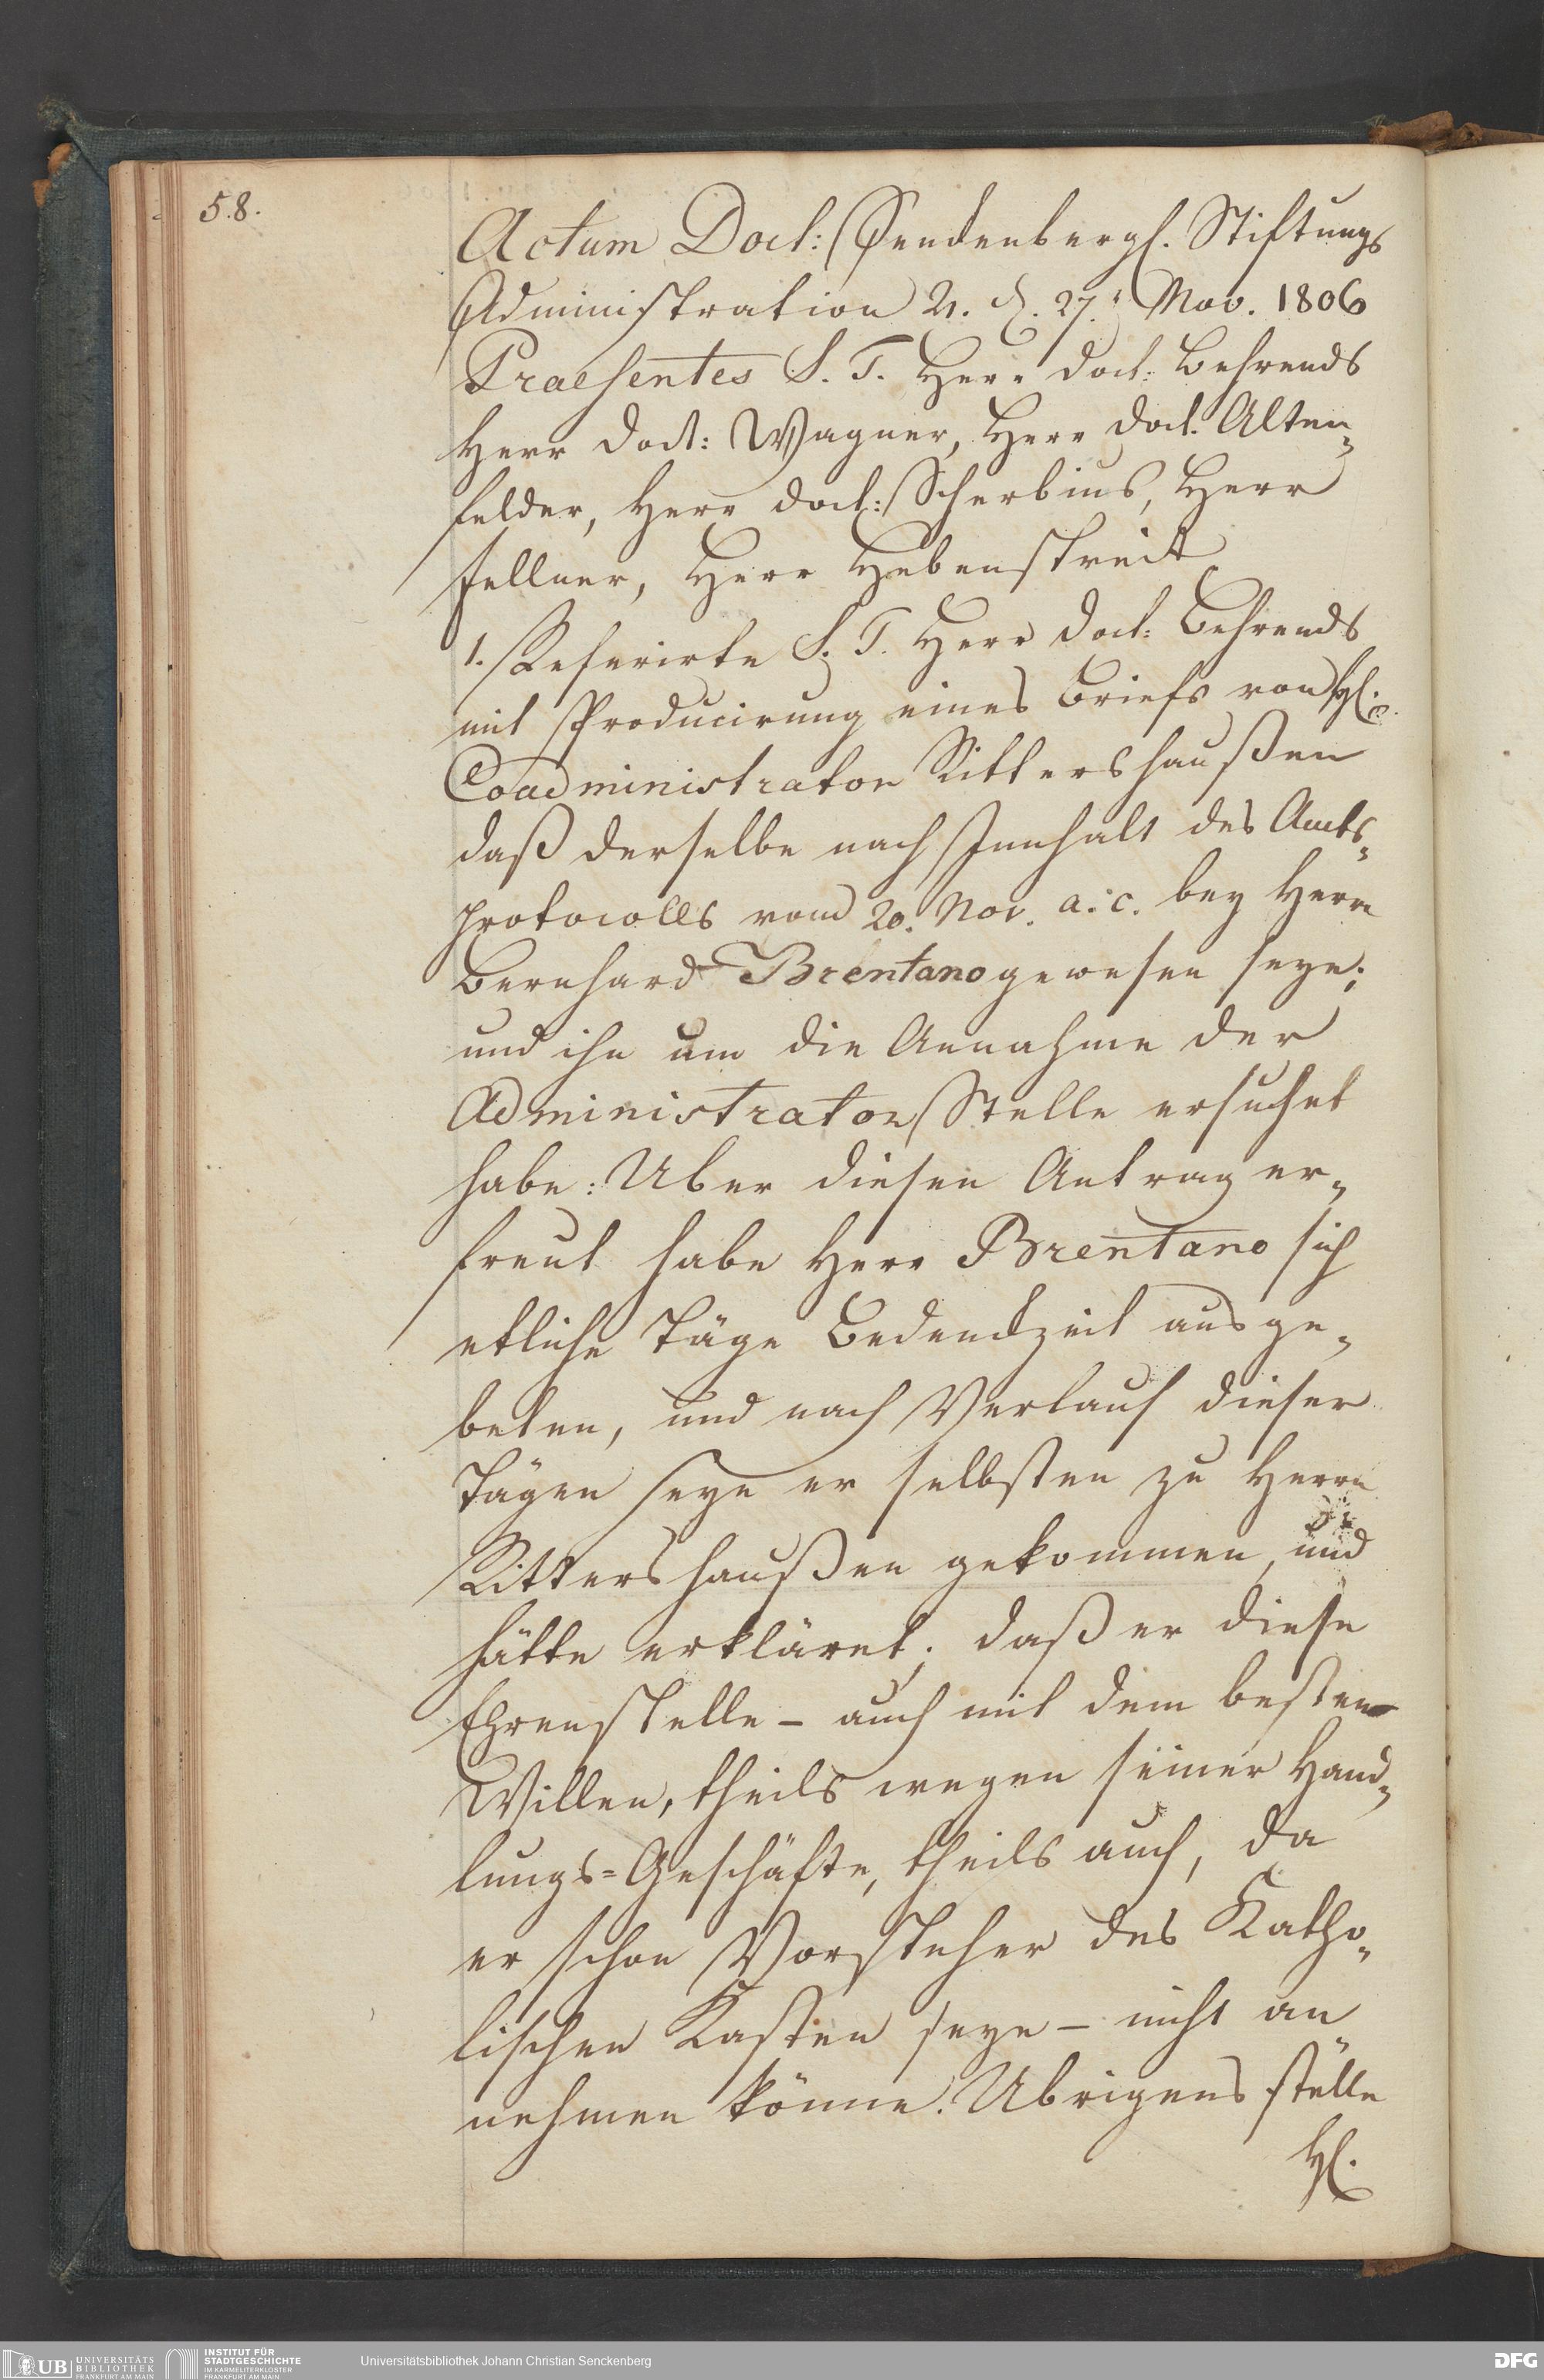 58.
Actum Doct: Senckenbergl. Stiftungs
Administration 21. d. 27. Nov. 1806
Praesentes S. T. Herr Doct: Behrends
Herr Doct: Wagner, Herr Doct. Alten„
felder, Herr Doct: Scherbius, Herr
Fellner, Herr Hebenstreit
1. Referirte S. T. Herr Doct: Behrends
mit Producirung eines Briefs von H.
Coadministrator Rittershaußen
daß derselbe nach Innhalt des Amts„
protocolls vom 20. Nov. a. c. bey Herrn
Bernhard Brentano gewesen seye;
und ihn um die Annahme der
Administrator Stelle ersuchet
habe: Uber diesen Antrag er„
freut habe Herr Brentano sich
etliche Täge Bedenckzeit ausge„
beten, und nach Verlauf dieser
Tägen seye er selbsten zu Herrn
Rittershaußen gekommen, und
hätte erkläret; daß er diese
Ehrenstelle – auch mit dem besten
Willen, theils wegen seiner Hand„
lungs=Geschäfte, theils auch, da
er schon Vorsteher des Katho„
lischen Kasten seye – nicht an
nehmen könne. Ubrigens stelle
H.
UB UNIVERSITÄTS
BIBLIOTHEK
FRANKFURT AM MAIN
INSTITUT FÜR
STADTGESCHICHTE
IM KARMELITERKLOSTER
FRANKFURT AM MAIN
Universitätsbibliothek Johann Christian Senckenberg
DFG